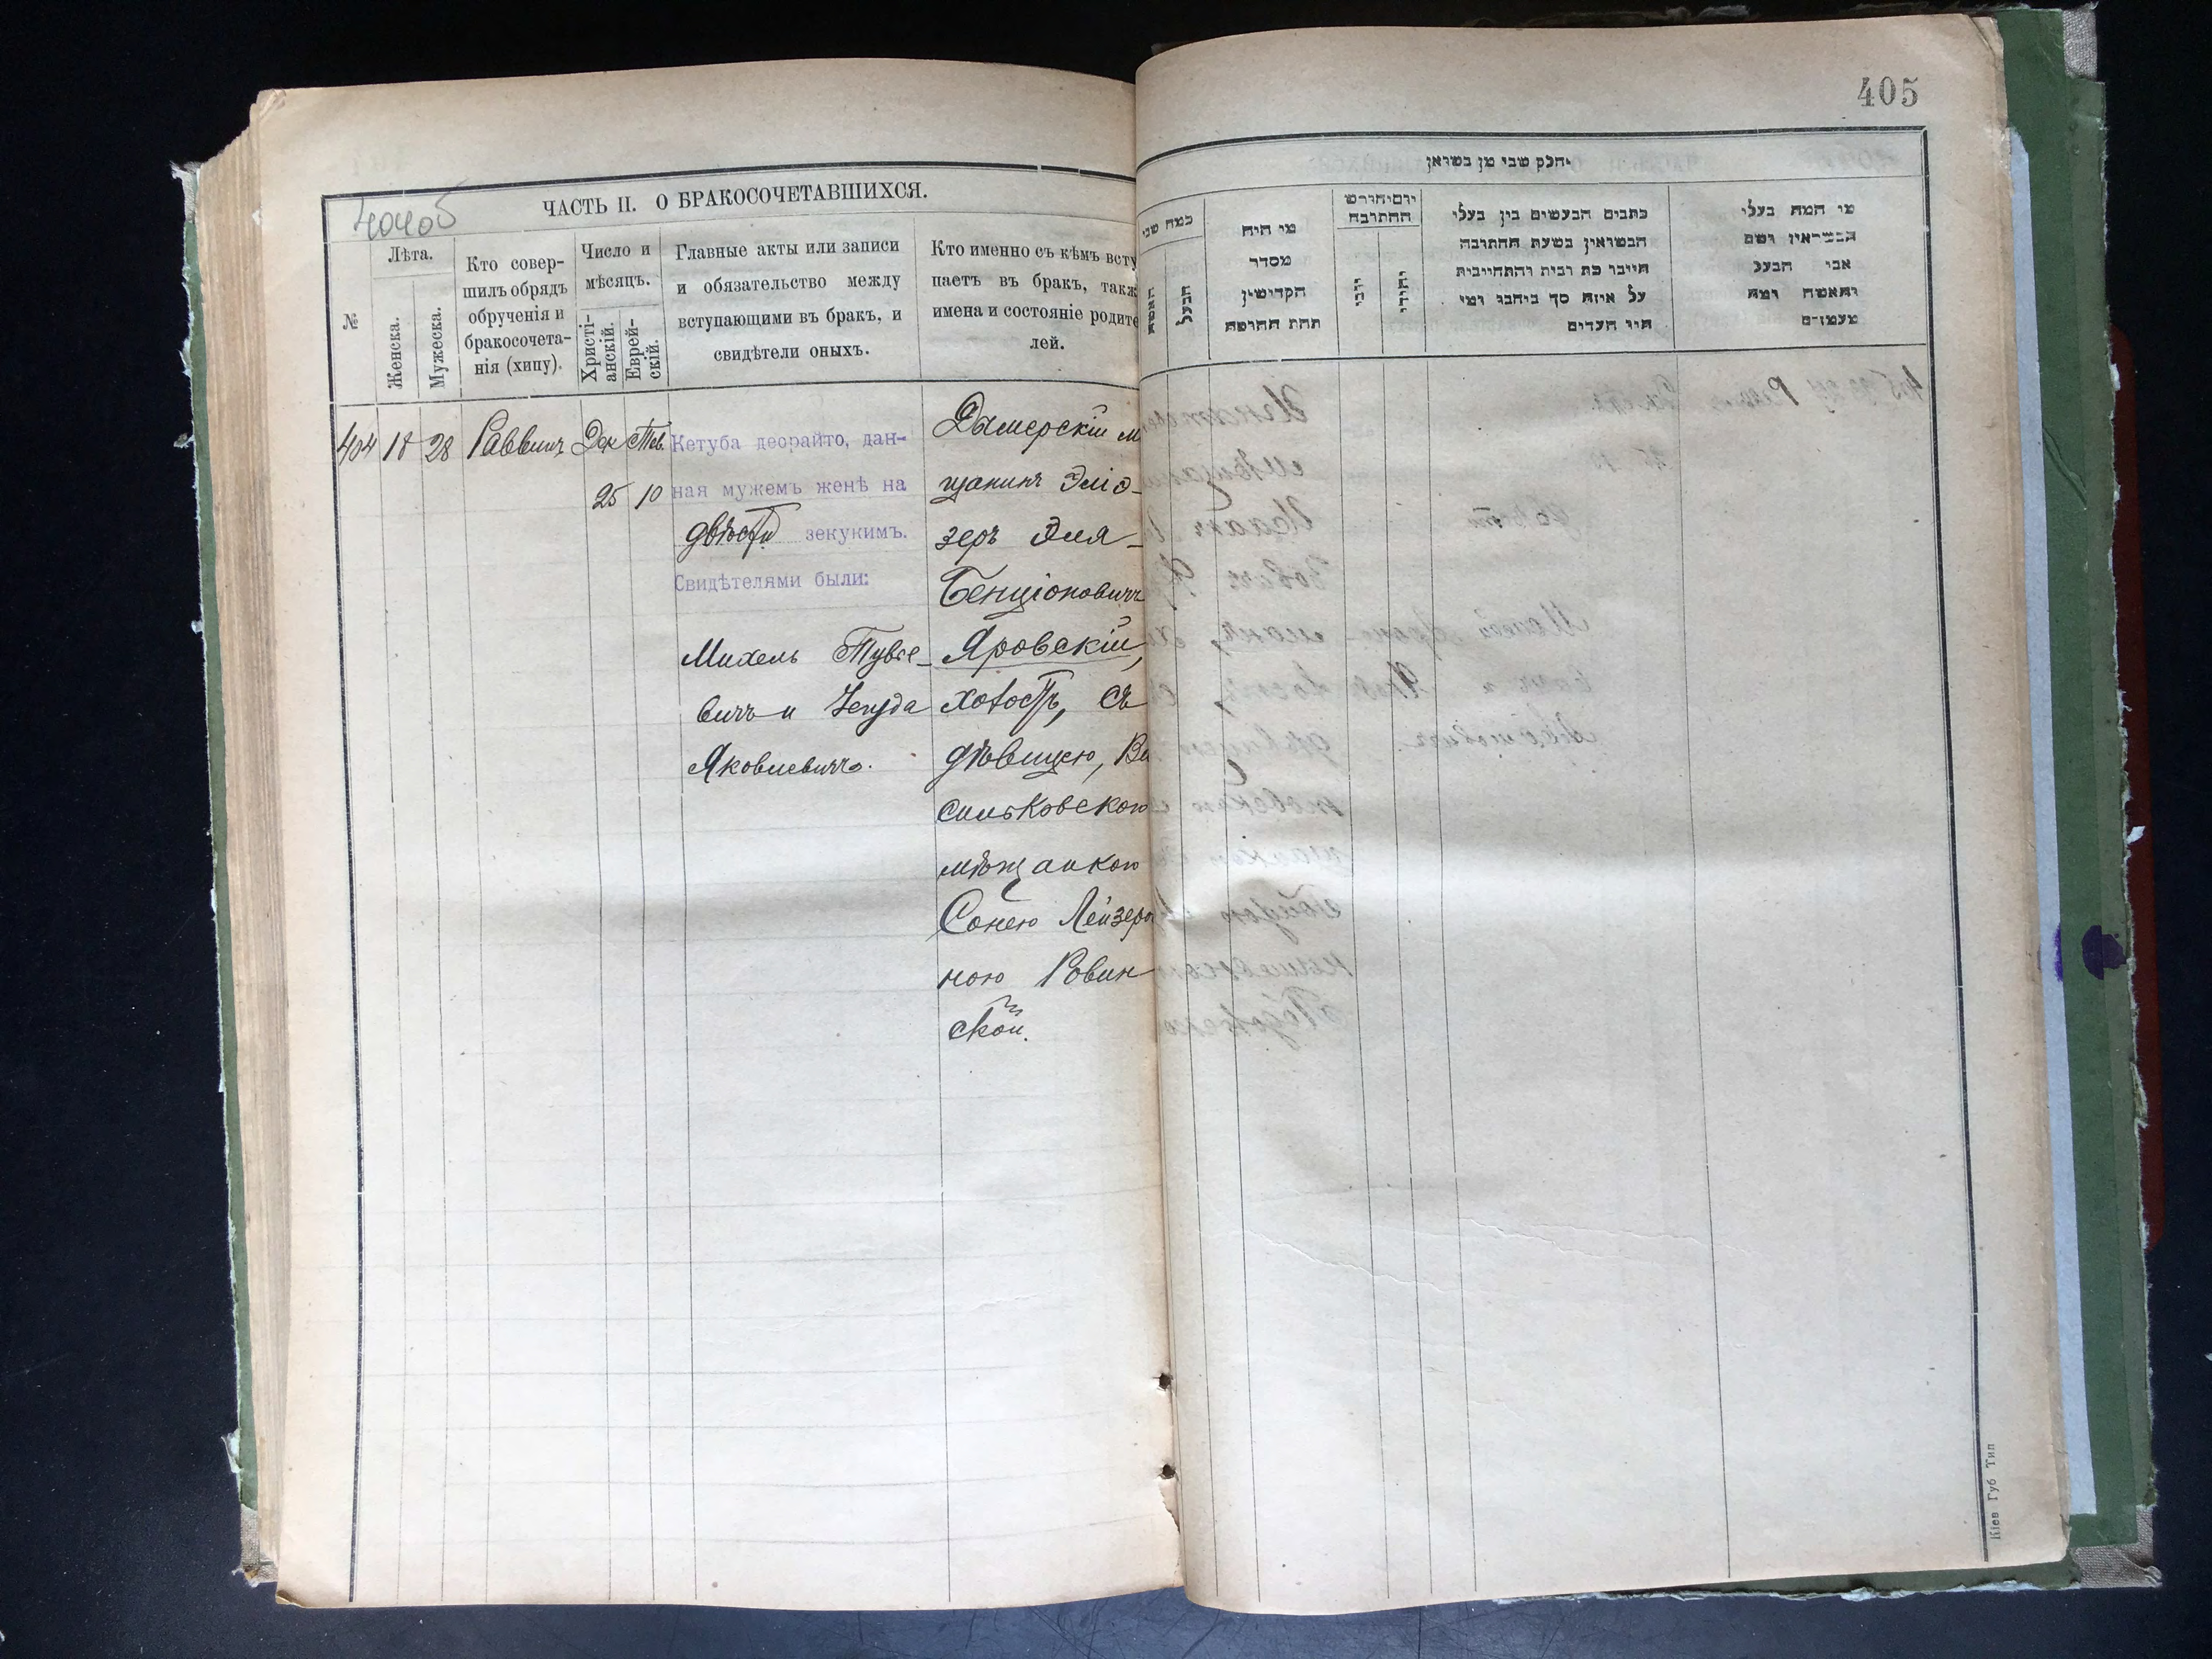 404об
ЧАСТЬ II. О БРАКОСОЧЕТАВШИХСЯ.
№
Лѣта.
Женска.
Мужеска.
Кто совер-
шилъ обрядъ
обрученія и
бракосочета-
нія (хипу).
Число и
мѣсяцъ.
Христі-
анскій.
Еврей-
скій.
Главные акты или записи
и обязательство между
вступающими въ бракъ, и
свидѣтели оныхъ.
Кто именно съ кѣмъ всту
паетъ въ бракъ, такж
имена и состояніе родите
лей.
404 18 28 Раввинъ Дек Тев.
25 10
Кетуба деорайто, дан-
ная мужемъ женѣ на
двѣсти зекукимъ.
Свидѣтелями были:
Михель Тувье-
вичъ и Іегуда
Яковлевичъ.
Дымерскій м
щанинъ Эліо-
зеръ Эля-
Бенціоновичъ
Яровскій,
холостъ, съ
дѣвицею, Ва
сильковскою
мѣщанкою
Сонею Лейзеров
ною Ровин
ской.
405
יחלק שבי מן בשואן
מי המה בעלי
הנשואין ושם
אבי הבעל
והאשה ומה
מעמדם
כתבים הנעשים בין בעלי
הנשואין בשעת החתובה
חייבו כת רבית והתחייבית
על איזה סך ביהבו ומי
היו העדים
יום וחודש
החתובה
יהודי
יוני
מי היה
מסדר
הקדושין
תחת החופה
כמה שני
הבעל
האשה
Кіев Губ Тип